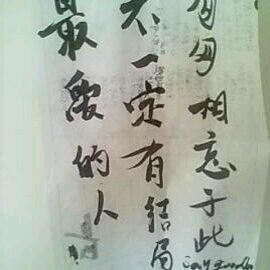 最爱的人
不一定有结局
相忘于此